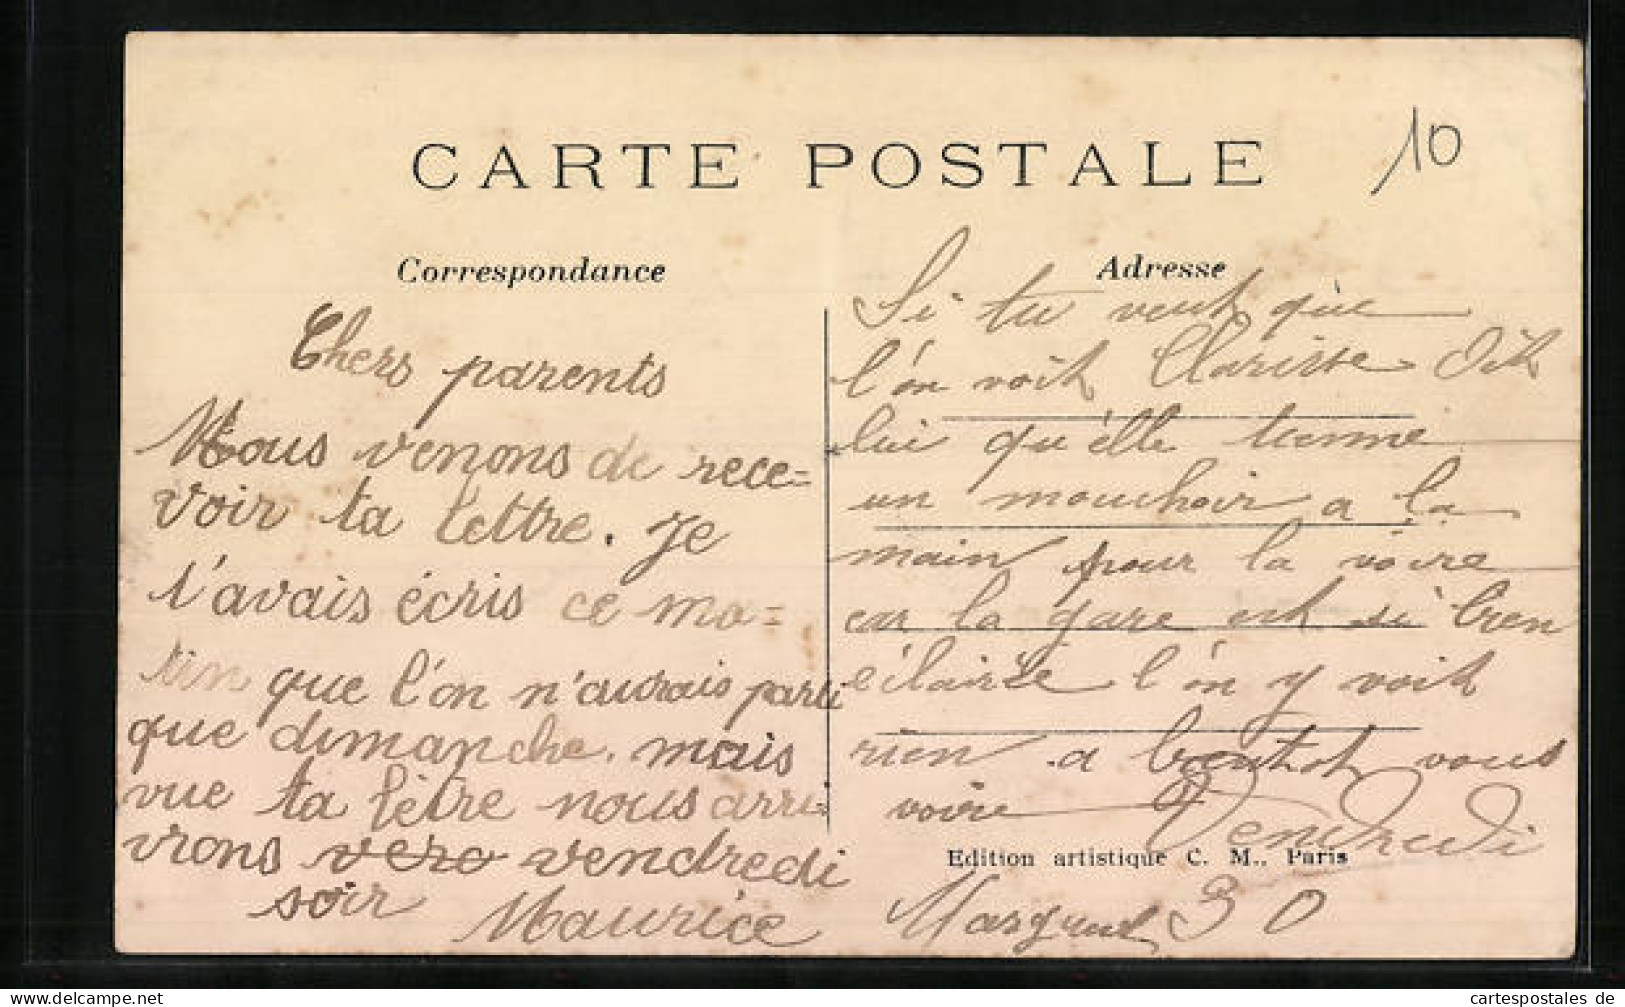 CARTE POSTALE
10
Correspondance
Chers parents
Nous venons de rece=
voir ta lettre. Je
t'avais écris ce ma=
tin que l'on n'aurais parti
que dimanche. mais
vue ta lètre nous arri=
vrons vero vendredi
soir Maurice
Adresse
Si tu veut que
l'on voit Clarisse Dit
lui qu'elle tienne
un mouchoir a la
main pour la voire
car la gare est si bien
éclairée l'on y voit
rien a bientot vous
voire
Vendredi
Edition artistique C. M., Paris
30
cartespostales de